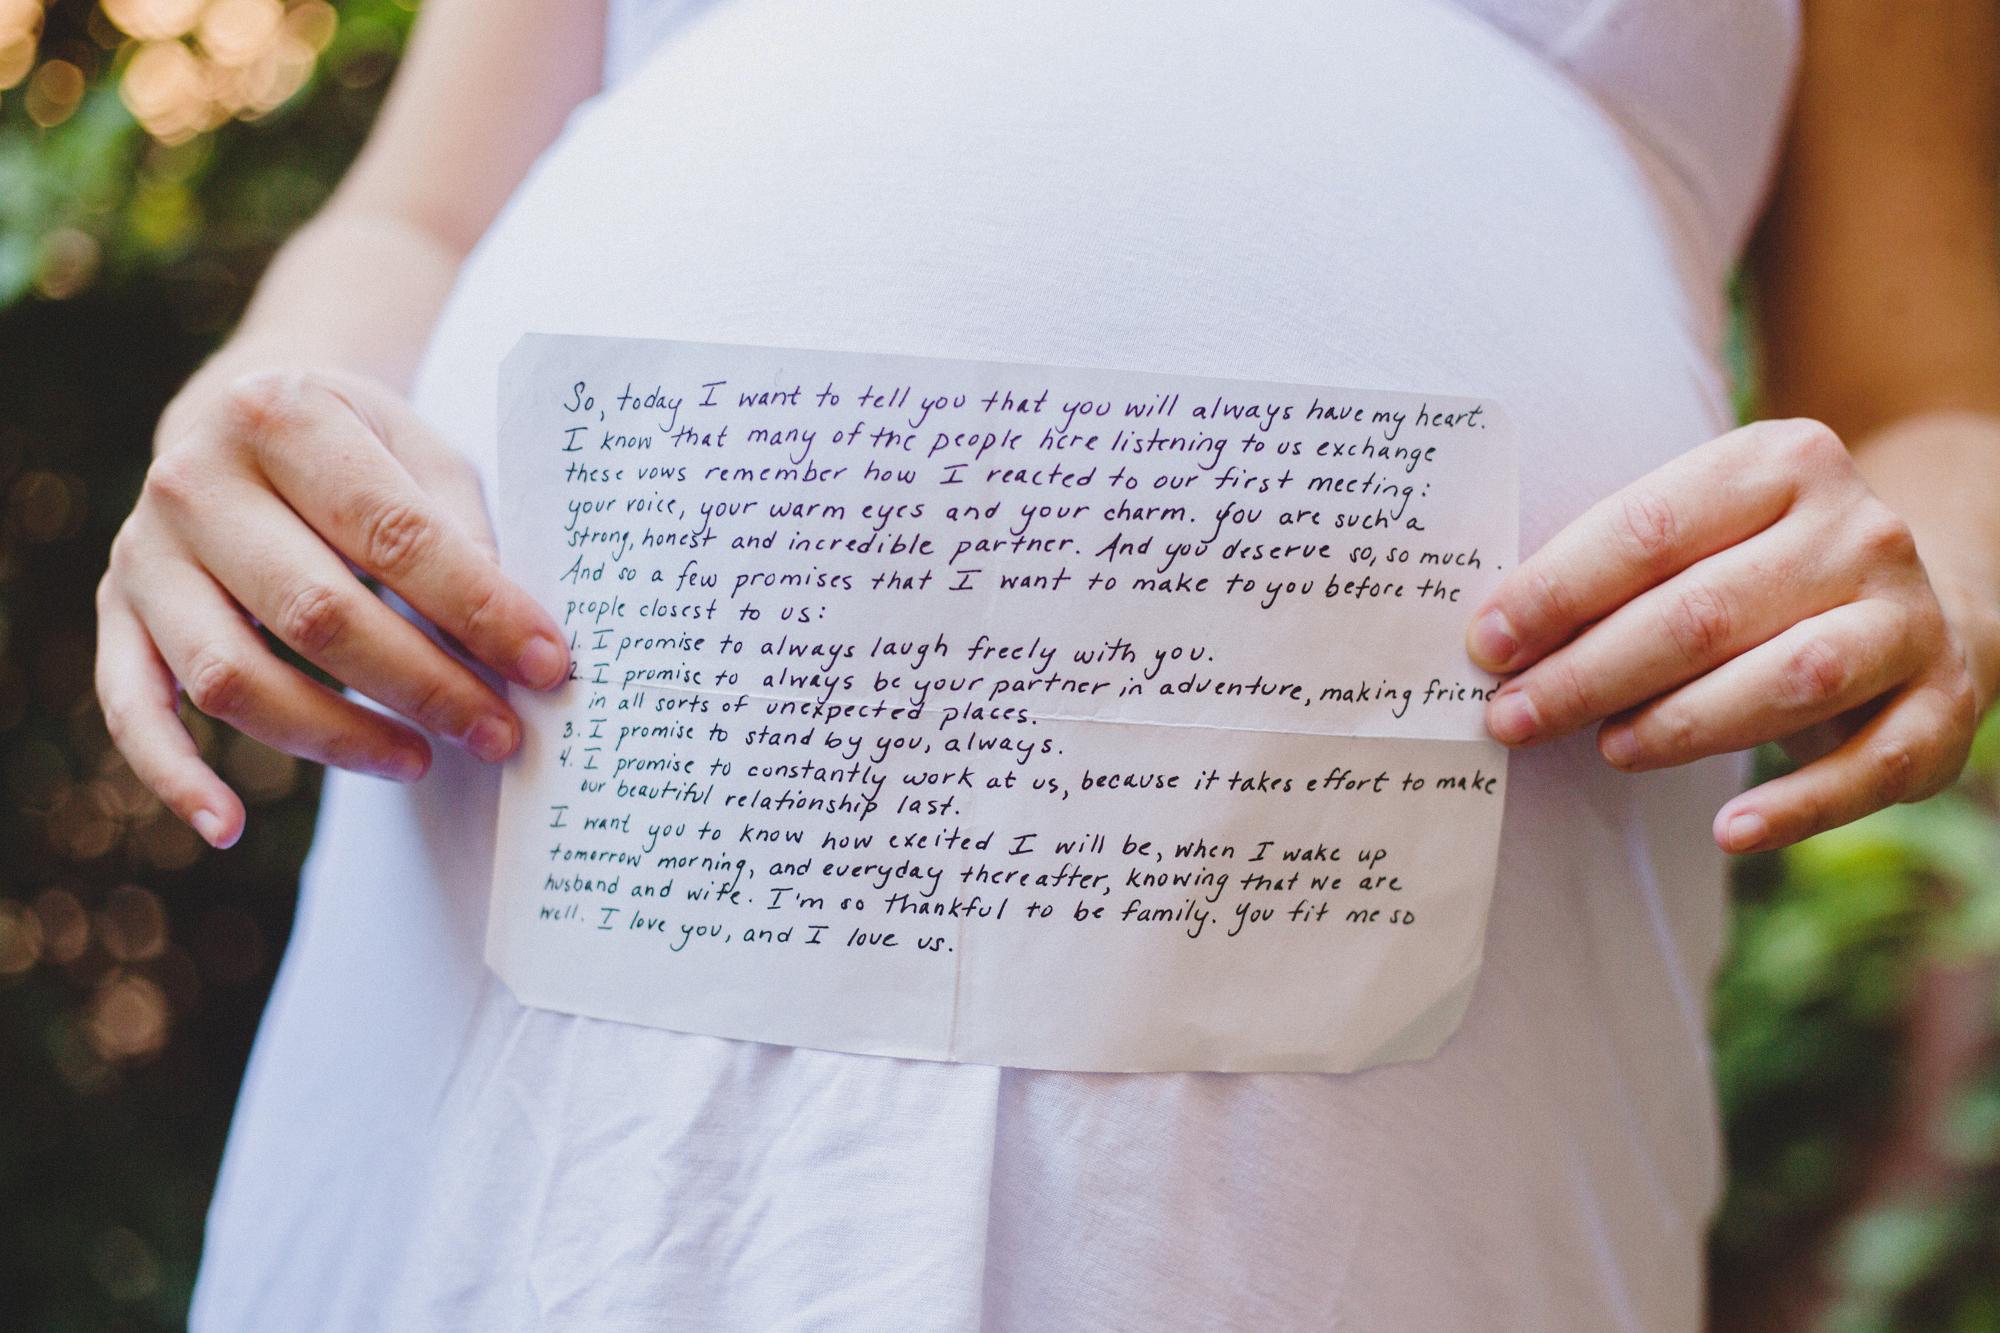 So, today I want to tell you that you will always have my heart.
I know that many of the people here listening to us exchange
these vows remember how I reacted to our first meeting:
your voice, your warm eyes and your charm. You are such a
strong, honest and incredible partner. And you deserve so, so much.
And so a few promises that I want to make to you before the
people closest to us:
1. I promise to always laugh freely with you.
2. I promise to always be your partner in adventure, making friend
in all sorts of unexpected places.
3. I promise to stand by you, always.
4. I promise to constantly work at us, because it takes effort to make
our beautiful relationship last.
I want you to know how excited I will be, when I wake up
tomorrow morning, and everyday thereafter, knowing that we are
husband and wife. I'm so thankful to be family. You fit me so
well. I love you, and I love us.